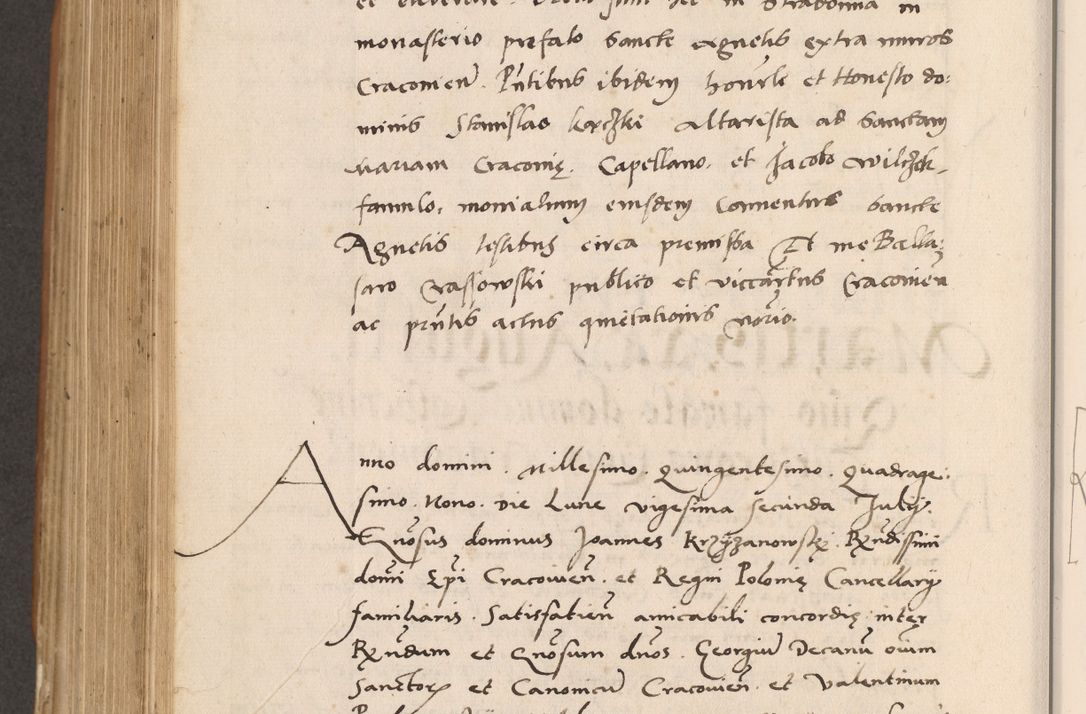 monasterio prefato Sancte Agnetis extra muros
Cracovien. Pntibus ibidem honrle et Honesto do:
minis Stanislao korczki Altarista ad Sanctam
Mariam Cracovię. Capellano. et Jacobo Wilczek.
famulo. monialium eiusdem Conventus Sancte
Agnetis testibus circa premissa Et me Balta:
saro Crassowski publico et
ac pntis actus quietationis Notrio.
Anno domini. Millesimo. Quingentesimo. Quadrage:
simo. Nono. Die Lune vigesima secunda Julij.
Gnosus dominus Joannes Krzyżanowskj. Rxndissimi
domi Epi Cracovien. et Regni Polonię Cancellarij
familiaris. Satisfatien amicabili concordię inter
Rxndum et Gnosum dnos. Georgiu Decanu oium
Sanctorx et Canonicu Cracovien. et Valentinum